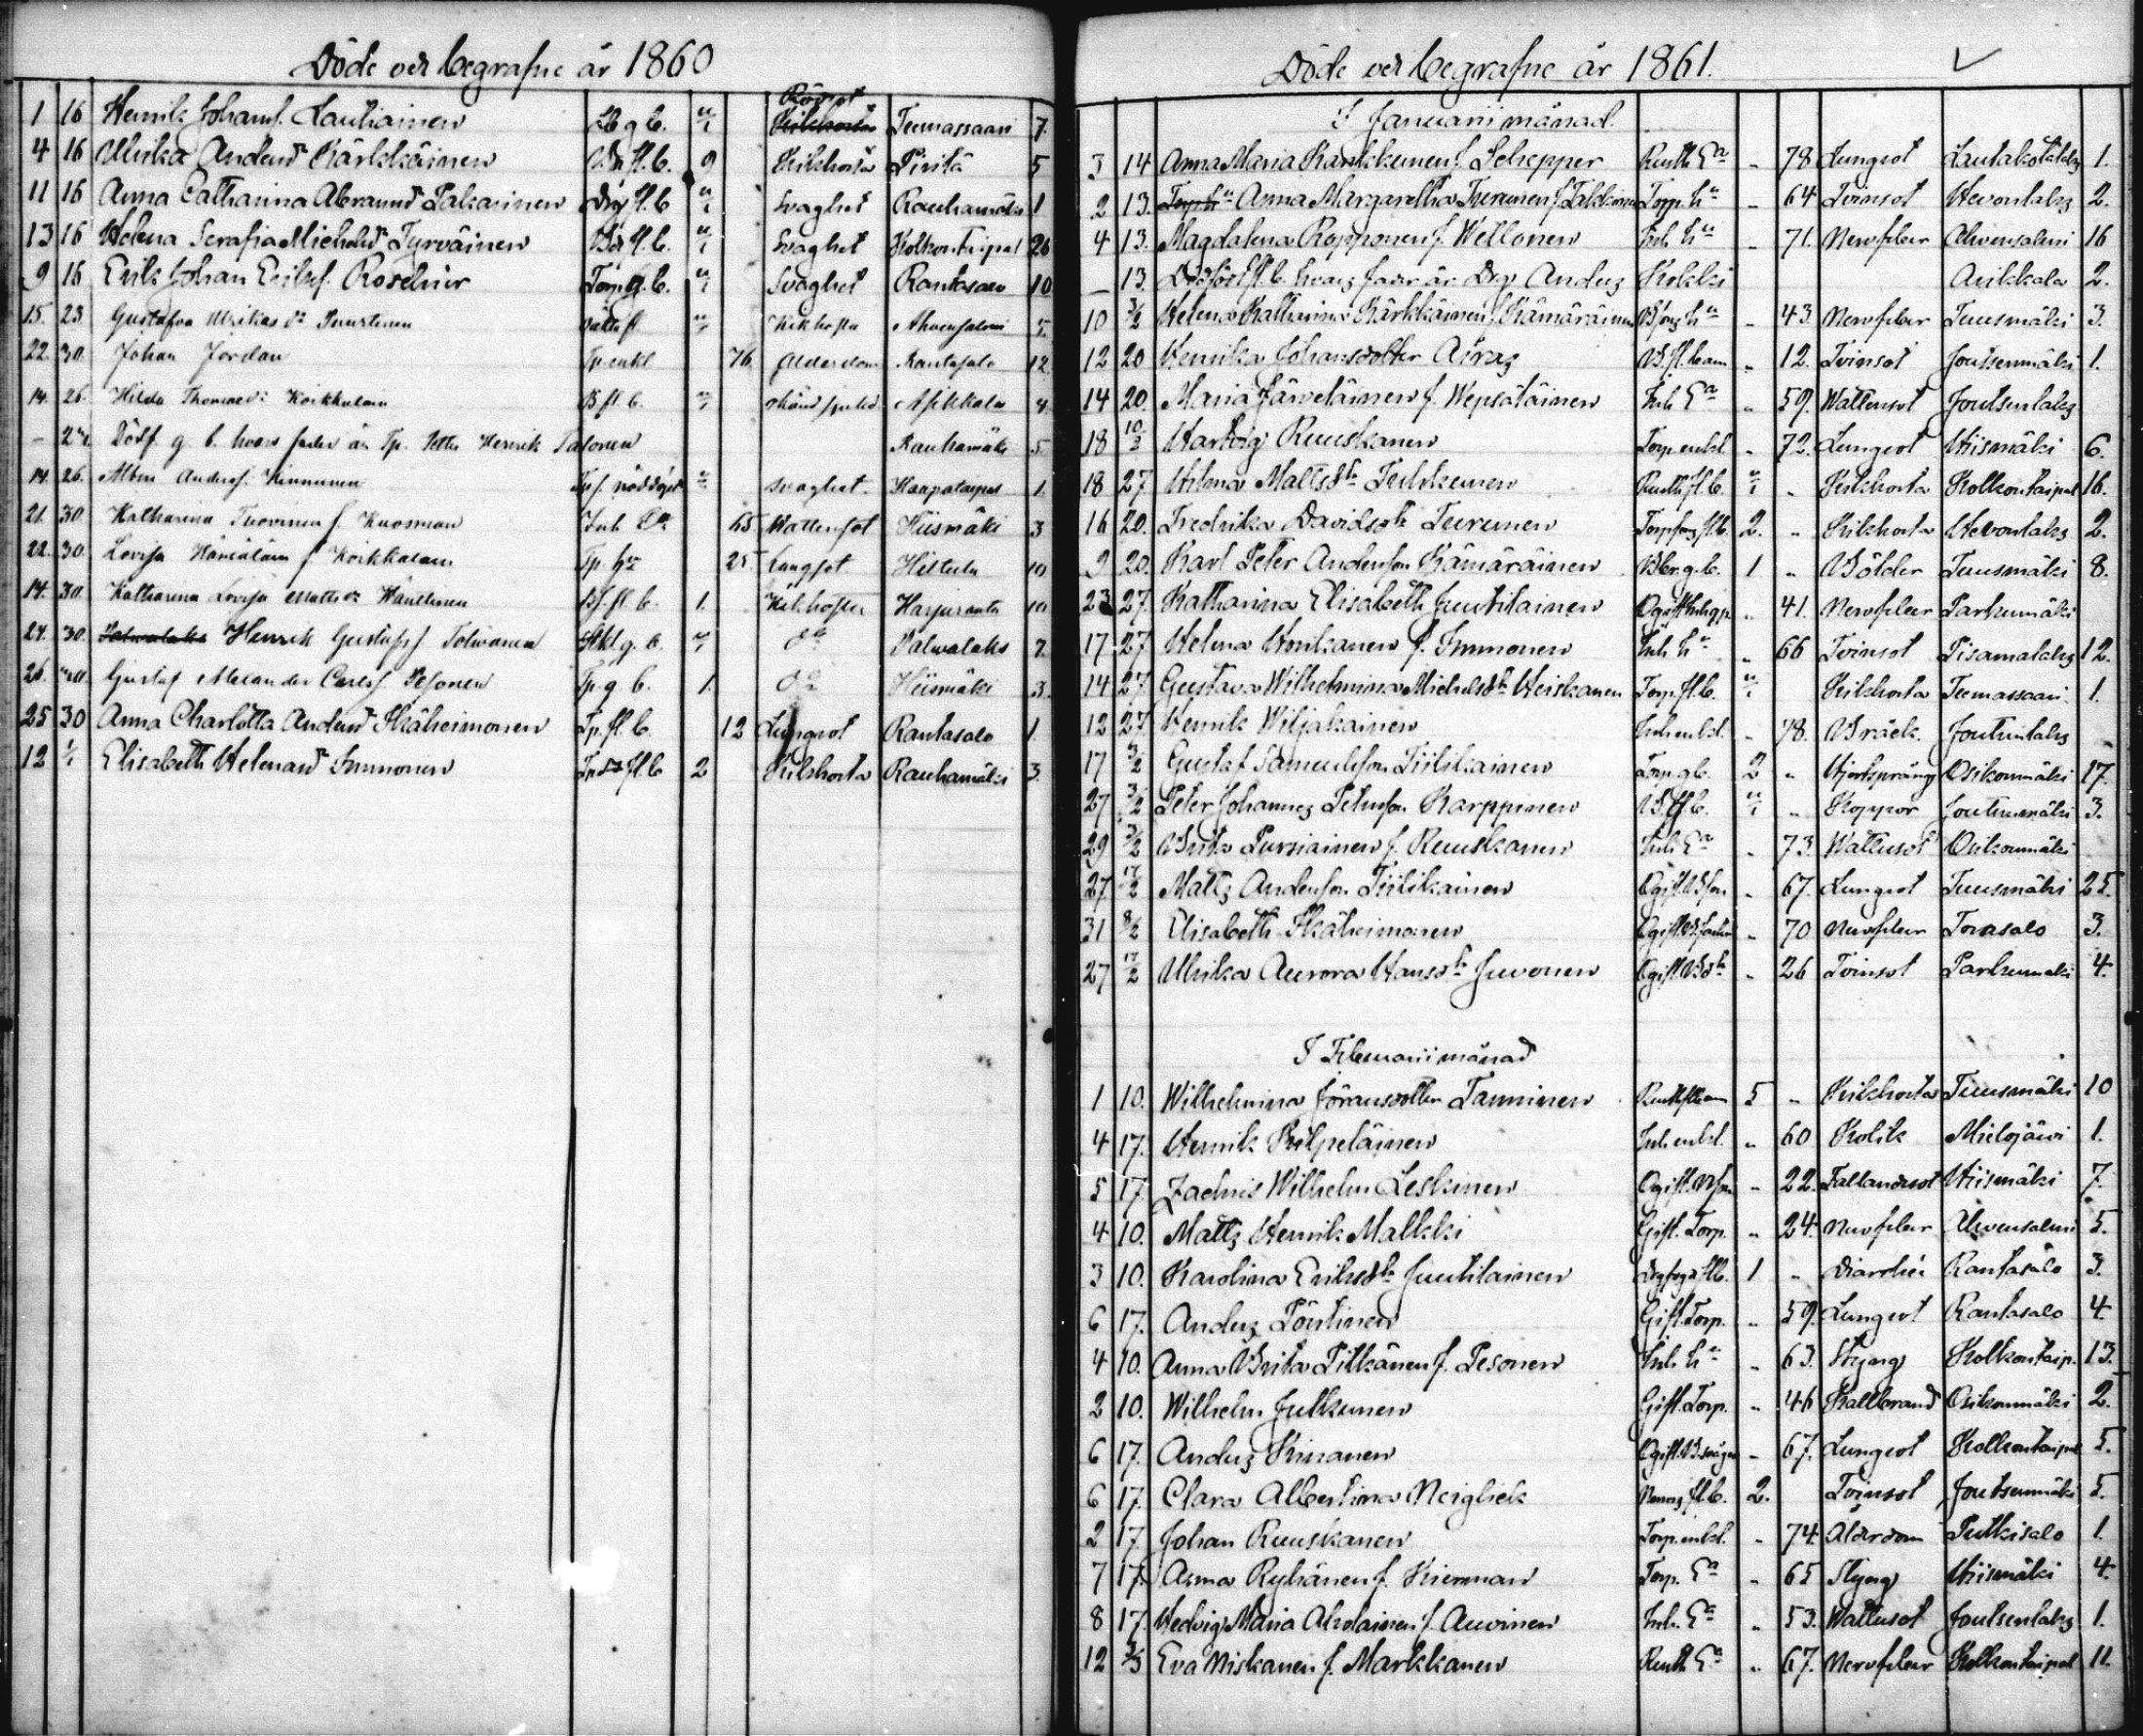 Döde och begrafne år 1860
Rödsot
1 16 Henrik Johans. Lauhiainen g b. u/1 Kikhosta Teemassaari 7
4 16 Ulrika Andersdr Kärkkäinen fl. b. 9 Kikhosta Piritä 5
11 16 Anna Catharina Abramsdr Pakarinen fl. b u/1 Svaghet Rauhamäki 1
13 16 Helena Serafia Michelsdr Tyrväinen fl. b. u/1 Svaghet Kolkontaipal 26
9 16 Erik Johan Eriks. Roselius Torp. g. b. u/1 Svaghet Rantasalo 10
15. 23 Gustafva Ulrikas dr oäkta fl u/1 Kikhosta Ahvensalmi 5
22. 30. Johan Jordan Tp. enkl 76 Ålderdom Rantasalo 12
14. 26. Hilda Thomasdr Koikkalain B. fl. b. u/1 Asikkala 4
– Dödf. g. b. hvars fader är Tp. Petter Henrik Talonen Rauhamäki 5
14. 26. Albin Anders. Kinnunen nöddöpt u/1 svaghet Haapataipal 1.
21. 30 Katharina Tuovinen f. Kuosman Inh. Ea 65 Wattensot Hiismäki 3
22. 30. Lovisa Hämäläin f. Koikkalain Tp. hu 25 Lungsot Hiltula 10
14. 30. Katharina Lovisa Mattsdr fl b. 1. Kikhosta Harjuranta 10
24. 30. Palvalaks Henrik Gustafs. Tolvanen g. b. u/1 do Palvalaks 2
26. 30. Gustaf Alexander Carls. Pesonen Tp. g b. 1. do Hiismäki 3.
25 30 Anna Charlotta Andersdr Häheimonen Tp. fl. b 12 Lungsot Rantasalo 1.
12 1/1 Elisabeth Helenasdr Immonen fl b 2 Kikhosta Rauhamäki 3.
Döde och begrafne år 1861.
I Januarii månad.
3 14 Anna Maria Kaukkunen f. Schepper Rusth. Ea „ 78 Lungsot Lautakotalaks 1.
2 13. Torp. hu Anna Margaretha Turunen f. Takkinen Torp. hu „ 64 Tvinsot Hevonlaks 2.
4 13. Magdalena Ropponen f. Wellonen Inh. hu „ 71. Nervfeber Ahvensalmi 16
– 13. Dödfödt fl. b. hvars fader är Drg Anders Kokki Asikkala 2.
10 3/2 Helena Katharina Kärkkäinen f. Kämäräinen hu „ 43. Nervfeber Tuusmäki 3.
12 20 Henrika Johansdotter Asras B. fl. barn „ 12. Tvinsot Joutsenmäki 1.
14 20. Maria Järveläinen f. Wepsäläinen Inh. Ea „ 59. Wattensot Joutsenlaks
18 10/2 Hartvig Ruuskanen Torp. enkl. „ 72. Lungsot Hiismäki 6.
18 27 Hilma Mattsdtr Juhkunen Rusth. fl. b. u/1 „ Kikhosta Kolkontaipal 16.
16 20. Fredrika Davidsdtr Turunen fl. b. 2. „ Kikhosta Hevonlaks 2.
9 20. Karl Peter Andersson Kämäräinen g. b. 1 „ Bölder Tuusmäki 8.
23 27. Katharina Elisabeth Juutilainen „ 41. Nervfeber Parkumäki
17 27 Helena Honkanen f. Immonen Inh. hu „ 66 Tvinsot Pisamalaks 12.
14 27. Gustava Wilhelmina Michelsdtr Heiskanen Torp. fl. b. u/1 Kikhosta Teemassaari 1.
12 27. Henrik Wiljakainen Inh. enkl. „ 78. Bråck. Joutsenlaks
17 3/2 Gustaf Samuelsson Tiilikainen Torp. g b. 2 „ Hjertsprång Osikonmäki 17.
27 3/2 Peter Johannes Petersson Karppinen B. g b. u/1 „ Koppor Joutsenmäki 3.
29 3/2 Brita Pursiainen f. Ruuskanen Inh. Ea „ 73. Wattusot Osikonmäki
27 17/2 Matts Andersson Tiilikainen Ogift. B. son „ 67. Lungsot Tuusmäki 25.
31 8/2 Elisabeth Häheimonen „ 70 Nervfeber Torasalo 3.
27 17/2 Ulrika Aurora Hansdtr Juvonen Ogift. B. dtr „ 26 Tvinsot Parkumäki 4.
I Februarii månad
1 10. Wilhelmina Göransdotter Tanninen 5 „ Kikhosta Tuusmäki 10
4 17. Henrik Kilpeläinen Inh. enkl. „ 60 Kolik Mielojärvi 1.
5 17. Zachris Wilhelm Leskinen Ogift. „ 22. Fallandesot Hiismäki 7.
4 10. Matts Henrik Malkki Gift. Torp. „ 24. Nervfeber Ahvensalmi 5.
3 10. Karolina Eriksdtr Juutilainen fl. b. 1 „ Diarrhéi Rantasalo 3.
6 17. Anders Pöntinen Gift. Torp. „ 59. Lungsot Rantasalo 4.
4 10. Anna Brita Pitkänen f. Pesonen Inh. hu „ 63. Styng Kolkontaip. 13.
2 10. Wilhelm Julkunen Gift. Torp. „ 46 Kallbrand Osikonmäki 2.
6 17. Anders Kinanen Ogift. B. svåger „ 67. Lungsot Kolkontaipal 5.
6 17. Clara Albertina Neiglick fl. b. 2. Tvinsot Joutsenmäki 5.
2 17. Johan Ruuskanen Torp. enkl. „ 74. Ålderdom Putkisalo 1.
7 17. Anna Ryhänen f. Kinnman Torp. Ea „ 65 Styng Hiismäki 4.
8 17. Hedvig Maria Aholainen f. Auvinen Inh. Ea „ 53. Wattusot Joutsenlaks 1.
12 3/3 Eva Miskanen f. Markkanen Rusth. Ea „ 67. Nervfeber Kolkontaipal 11.